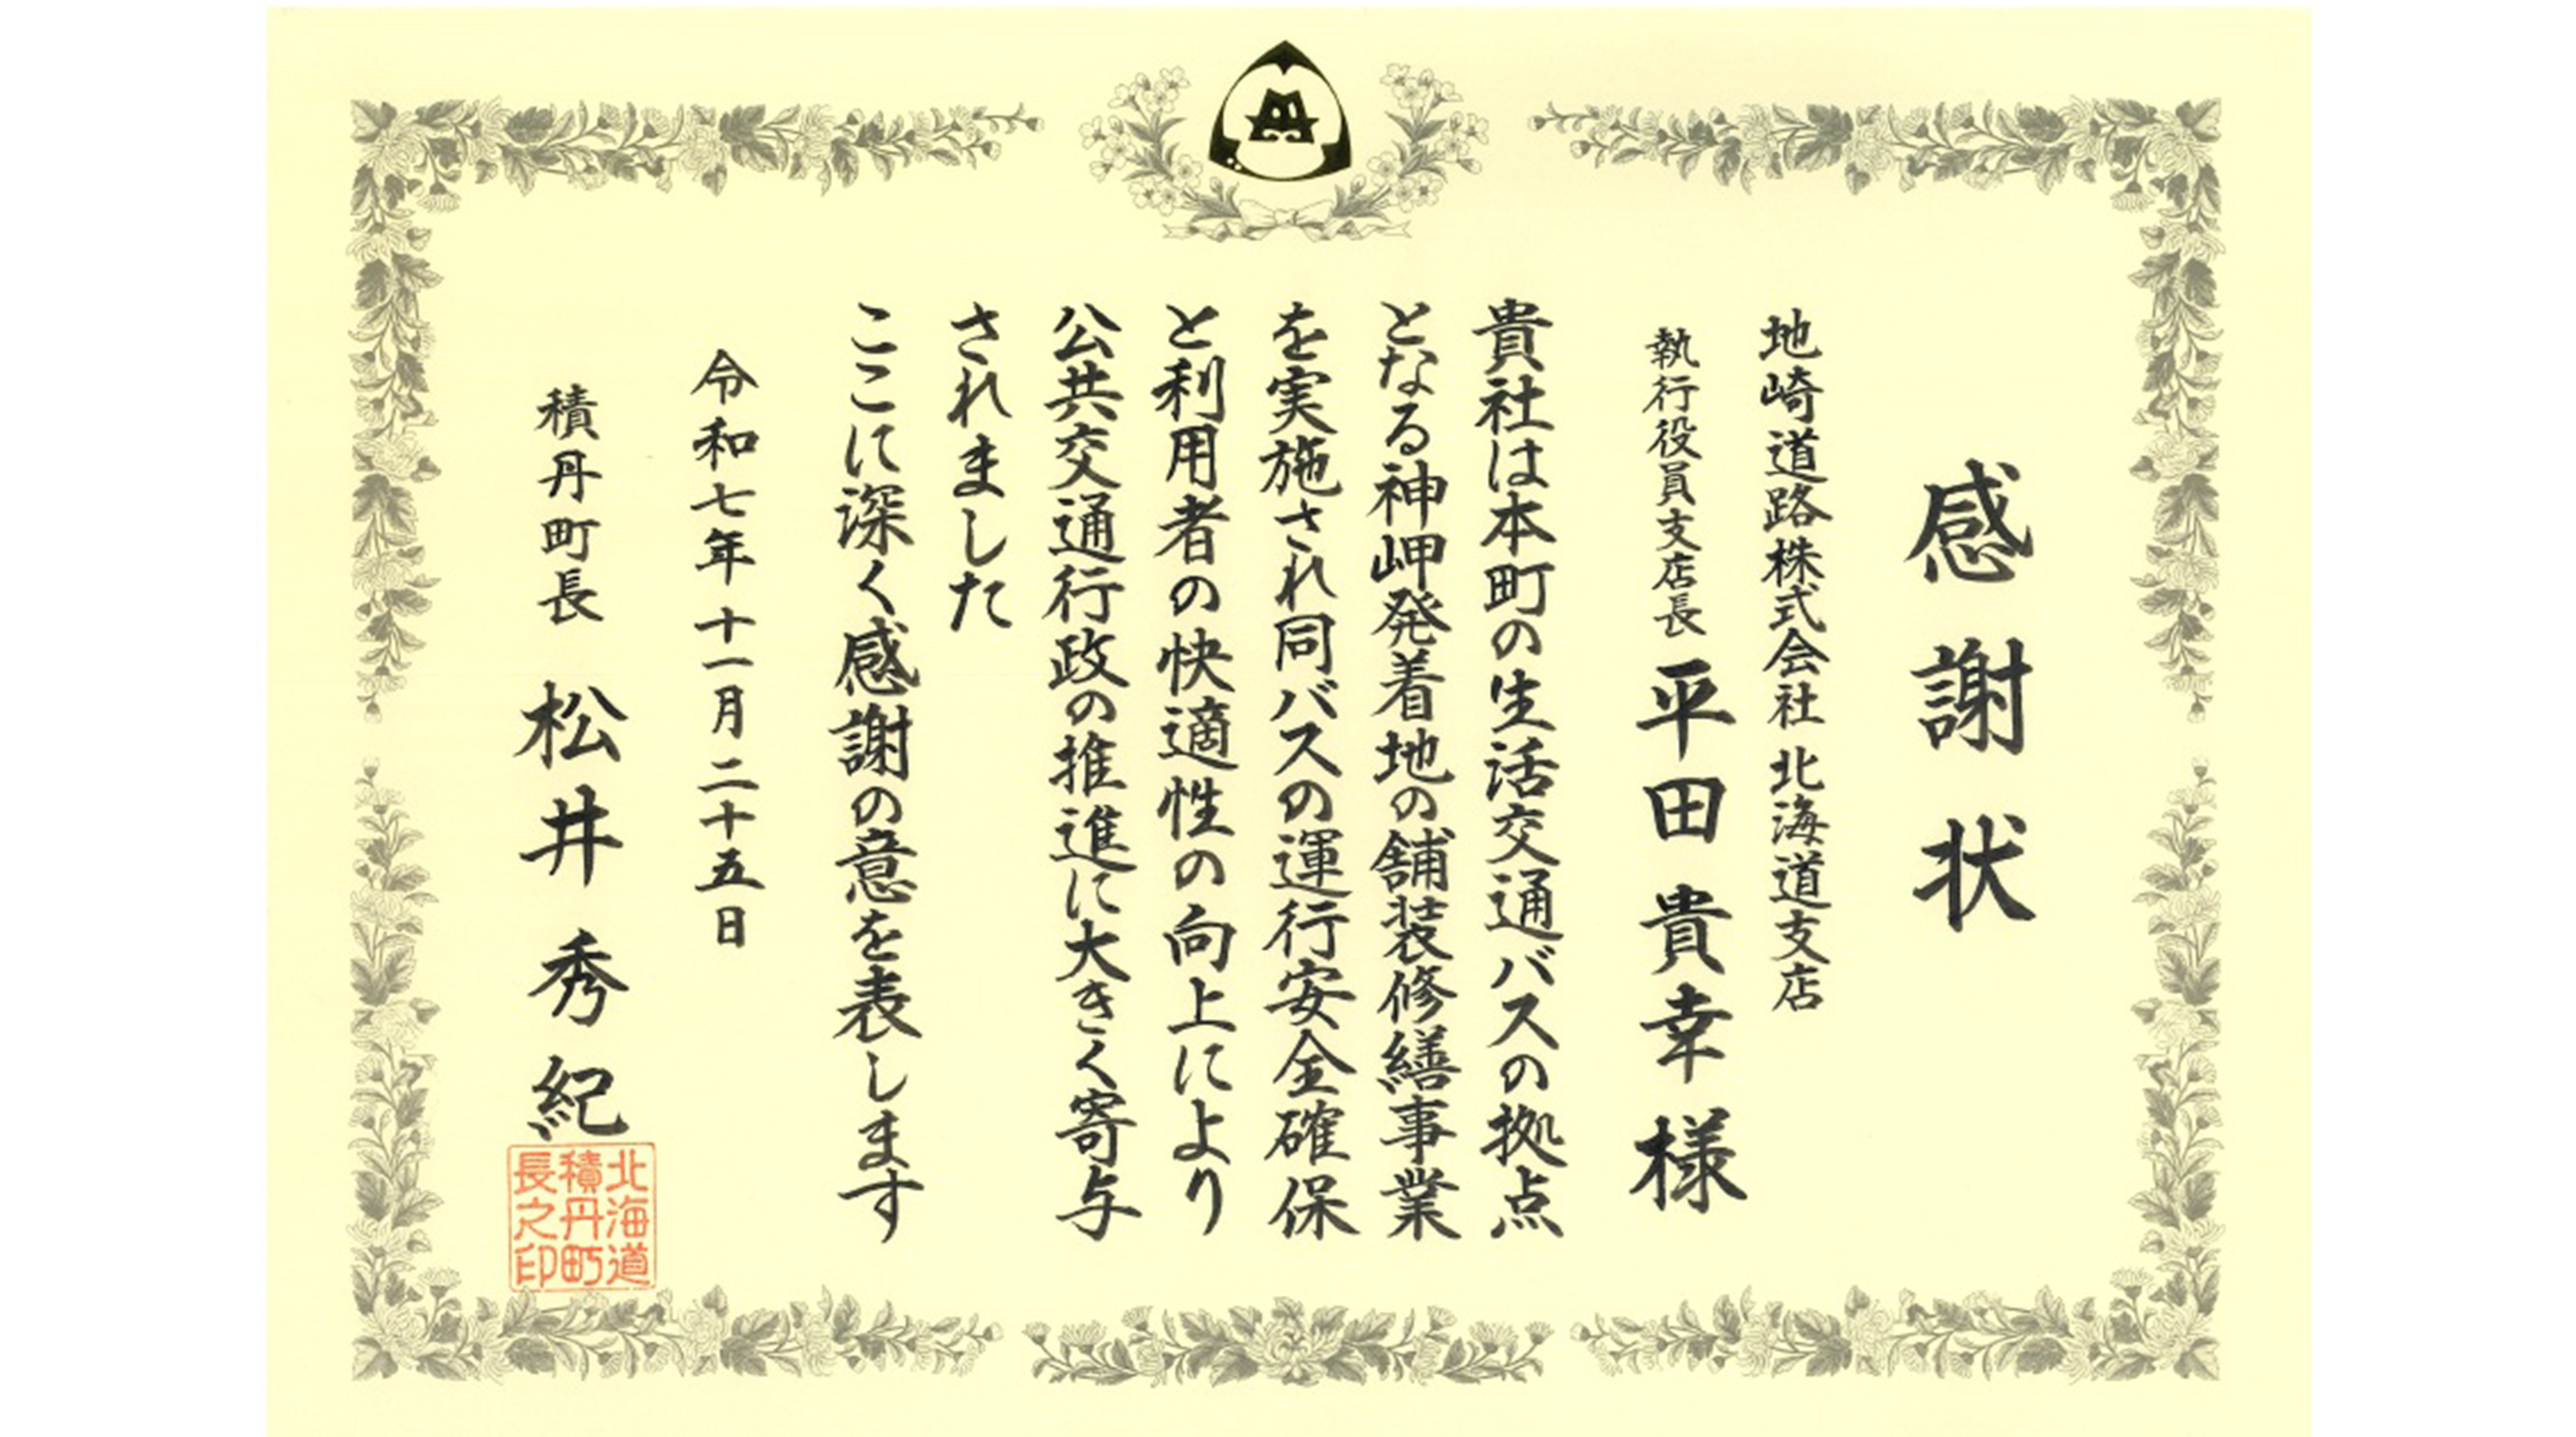 感謝状
地崎道路株式会社 北海道支店
執行役員支店長 平田貴幸様
貴社は本町の生活交通バスの拠点
となる神岬発着地の舗装修繕事業
を実施され同バスの運行安全確保
と利用者の快適性の向上により
公共交通行政の推進に大きく寄与
されました
ここに深く感謝の意を表します
令和七年十一月二十五日
積丹町長 松井秀紀
北海道
積丹町
長之印